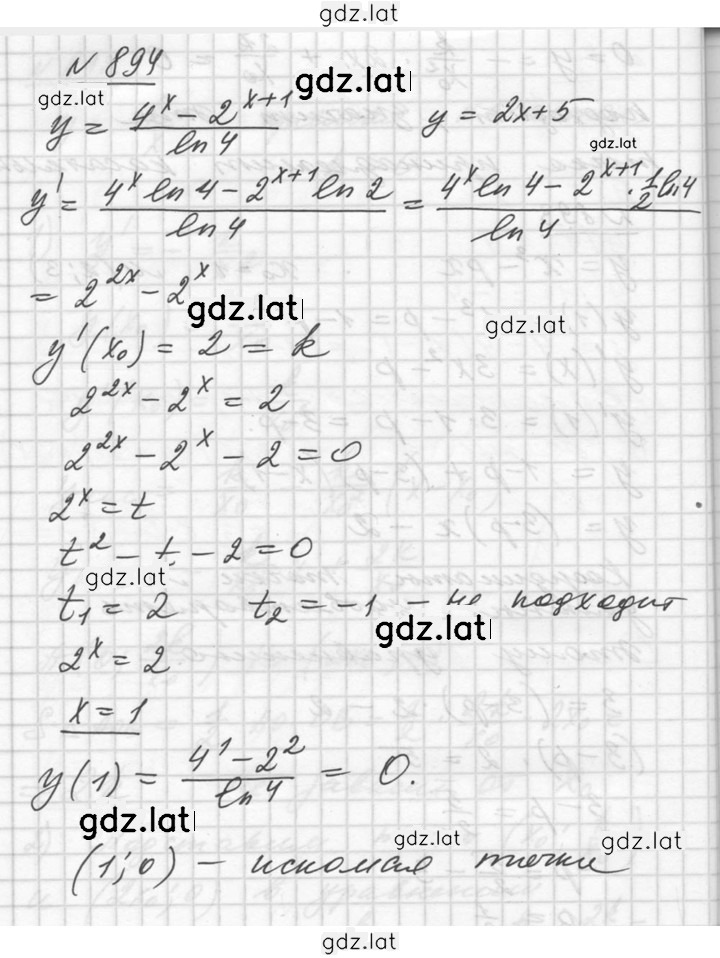 gdz.lat
N 894
gdz.lat gdz.lat
y = (4^x - 2^(x+1))/(ln 4) y = 2x+5
gdz.lat
y' = (4^x ln 4 - 2^(x+1) ln 2)/(ln 4) = (4^x ln 4 - 2^(x+1) · 1/2 ln 4)/(ln 4)
= 2^(2x) - 2^x
gdz.lat gdz.lat
y'(x₀) = 2 = k
2^(2x) - 2^x = 2
2^(2x) - 2^x - 2 = 0
2^x = t
t² - t - 2 = 0
gdz.lat
t₁ = 2 t₂ = -1 - не подходит
gdz.lat
2^x = 2
x = 1
y(1) = (4¹ - 2²)/(ln 4) = 0.
gdz.lat gdz.lat gdz.lat
(1; 0) - искомая точка
gdz.lat